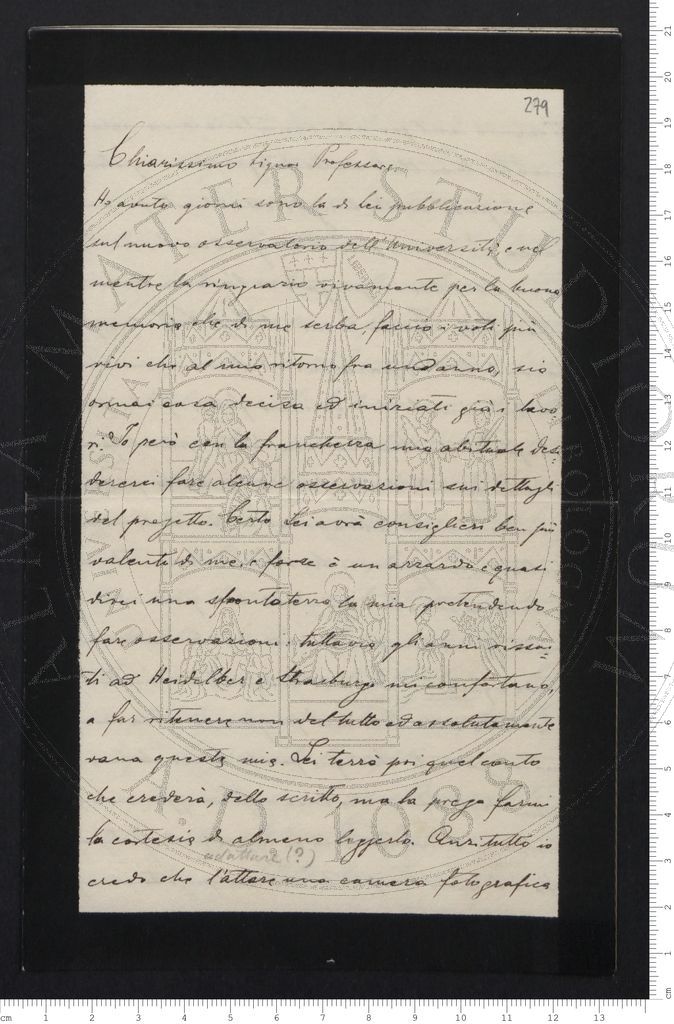 279
Chiarissimo Signor Professore,
Ho avuto giorni sono la di Lei pubblicazione
sul nuovo osservatorio dell'Università, e nel
mentre la ringrazio vivamente per la buona
memoria che di me serba, faccio i voti più
vivi che al mio ritorno fra un anno, sia
ormai cosa decisa ed iniziati già i lavo
ri. Io però con la franchezza mia abituale desi-
dererei fare alcune osservazioni sui dettagli
del progetto. Certo Lei avrà consiglieri ben più
valenti di me, e forse è un azzardo e quasi
direi una sfrontatezza la mia pretendendo
fare osservazioni: tuttavia gli anni vissu-
ti ad Heidelber e Strasburgo mi confortano,
a far ritenere non del tutto ed assolutamente
vana questa mia. Lei terrà poi quel conto
che crederà, dello scritto, ma la prego farmi
la cortesia di almeno leggerlo. Anzitutto io
adattare (?)
credo che l'attare una camera fotografica
ALMA MATER STUDIORUM
A.D. 1088
cm 1 2 3 4 5 6 7 8 9 10 11 12 13
cm 1 2 3 4 5 6 7 8 9 10 11 12 13 14 15 16 17 18 19 20 21